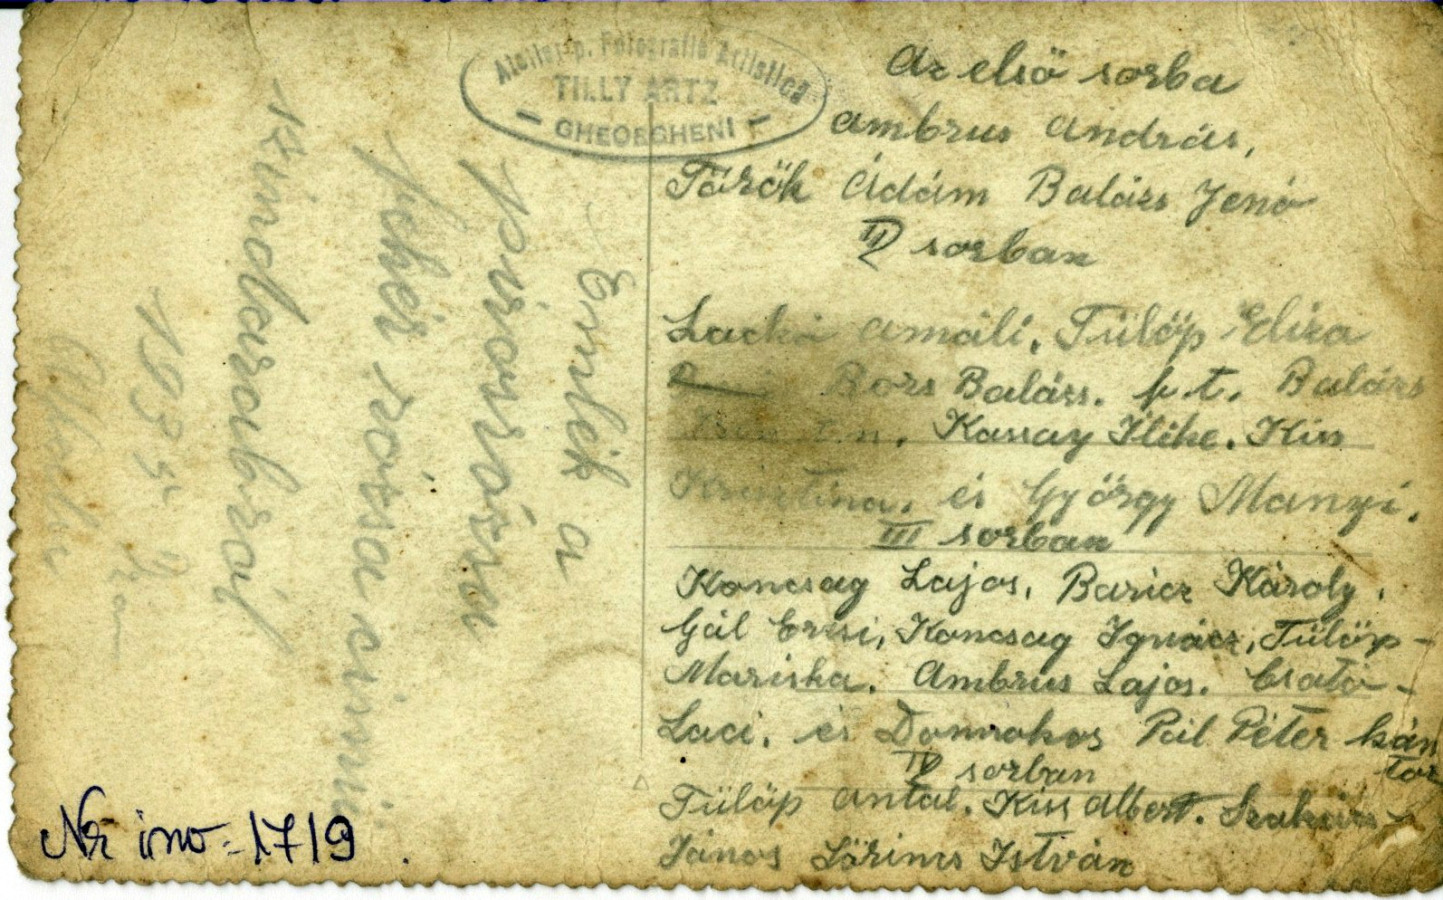 Atelier p. Fotografie Artistica
TILLY ARTZ
- GHEORGHENI -
Emlék a
piros rózsa
fehér rózsa cimmü
szindarabról
1935
Az elsö sorba
Ambrus András,
Török Ádám Balázs Jenö
II sorban
Amáli, Fülöp Eliza
Bors Balázs. p.t. Balázs
Kassay Ilike. Kiss
Krisztina, és György Manyi,
III sorban
Koncsag Lajos, Baricz Károly,
Gál Erzsi, Koncsag Ignácz, Fülöp-
Mariska. Ambrus Lajos. Csató-
Laci, és Domokos Pál Péter kán
tor
IV sorban
Fülöp Antal. Kiss Albert. Szakács
János Lörincs István
Nr inv-1719